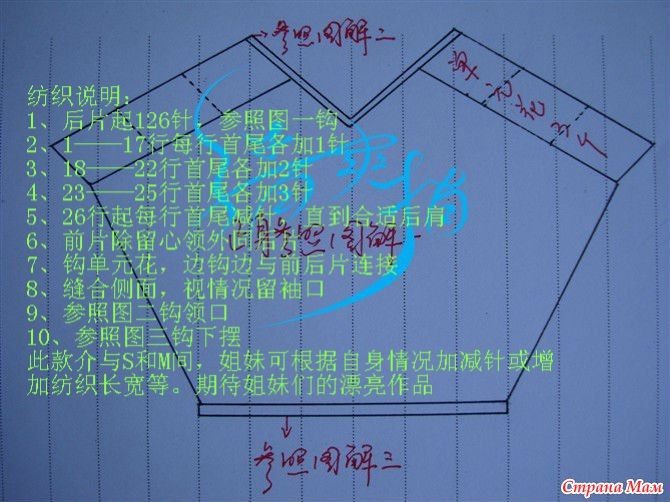 参照图解二
单元花3个
纺织说明:
1、后片起126针，参照图一钩
2、1——17行每行首尾各加1针
3、18——22行首尾各加2针
4、23——25行首尾各加3针
5、26行起每行首尾减针，直到合适后肩
6、前片除留心领外同后片
7、钩单元花，边钩边与前后片连接
8、缝合侧面，视情况留袖口
9、参照图二钩领口
10、参照图三钩下摆
此款介与S和M间，姐妹可根据自身情况加减针或增
加纺织长宽等。期待姐妹们的漂亮作品
参照图解一
参照图解三
Страна Мам